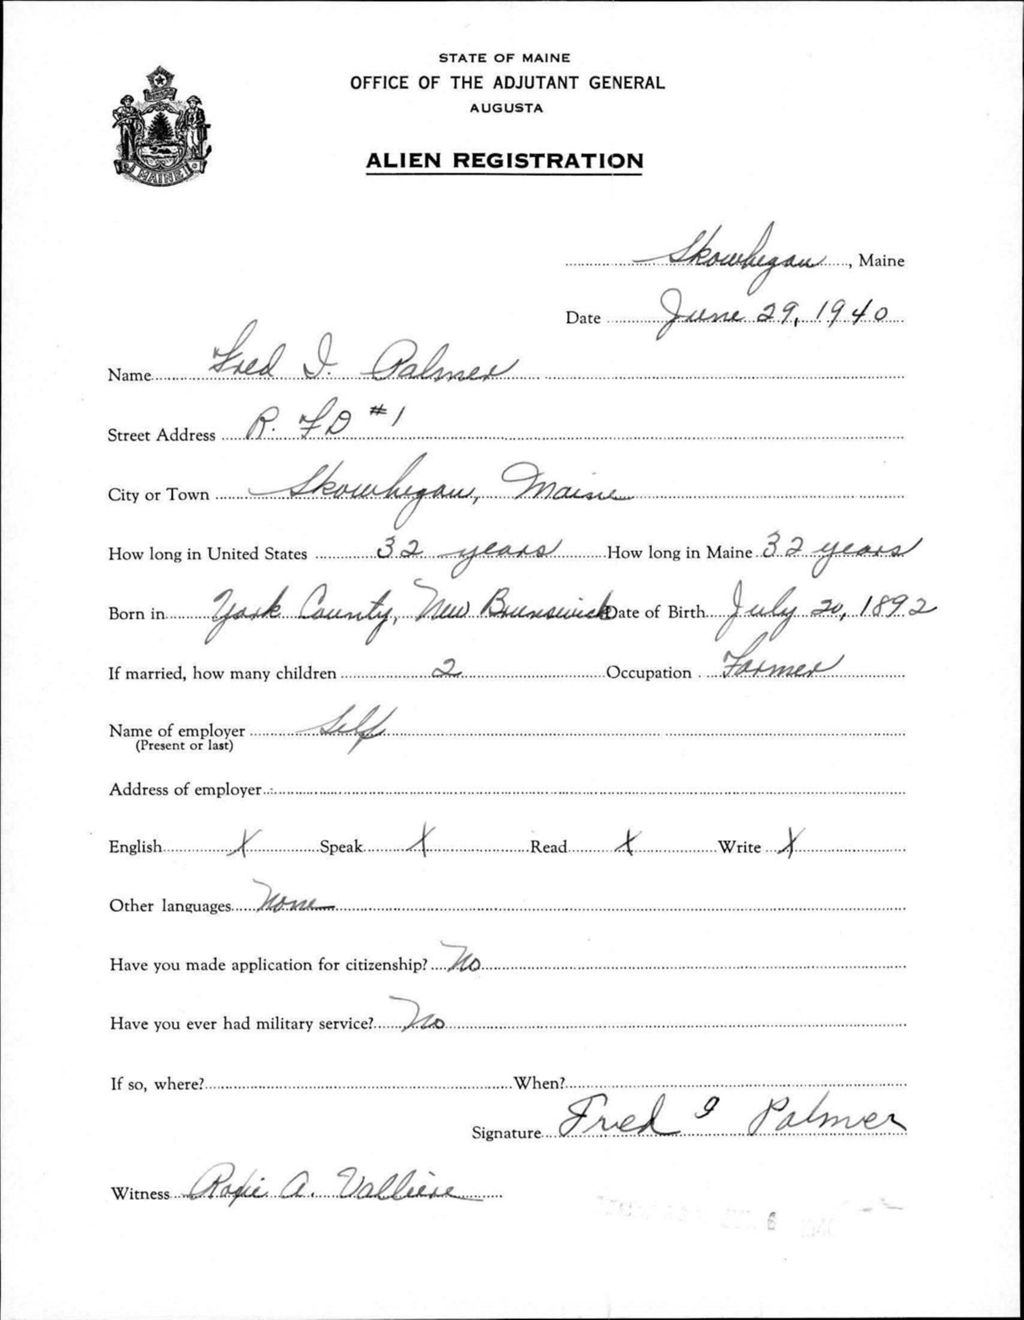 STATE OF MAINE
OFFICE OF THE ADJUTANT GENERAL
AUGUSTA
ALIEN REGISTRATION
MAINE
Skowhegan, Maine
Date June 29, 1940
Name Fred I. Palmer
Street Address R. F D #1
City or Town Skowhegan, Maine
How long in United States 32 years How long in Maine 32 years
Born in York County, New Brunswick Date of Birth July 20, 1892
If married, how many children 2 Occupation Farmer
Name of employer Self
(Present or last)
Address of employer
English X Speak X Read X Write X
Other languages None
Have you made application for citizenship? No
Have you ever had military service? No
If so, where? When?
Signature Fred I Palmer
Witness Roxie A. Valliere